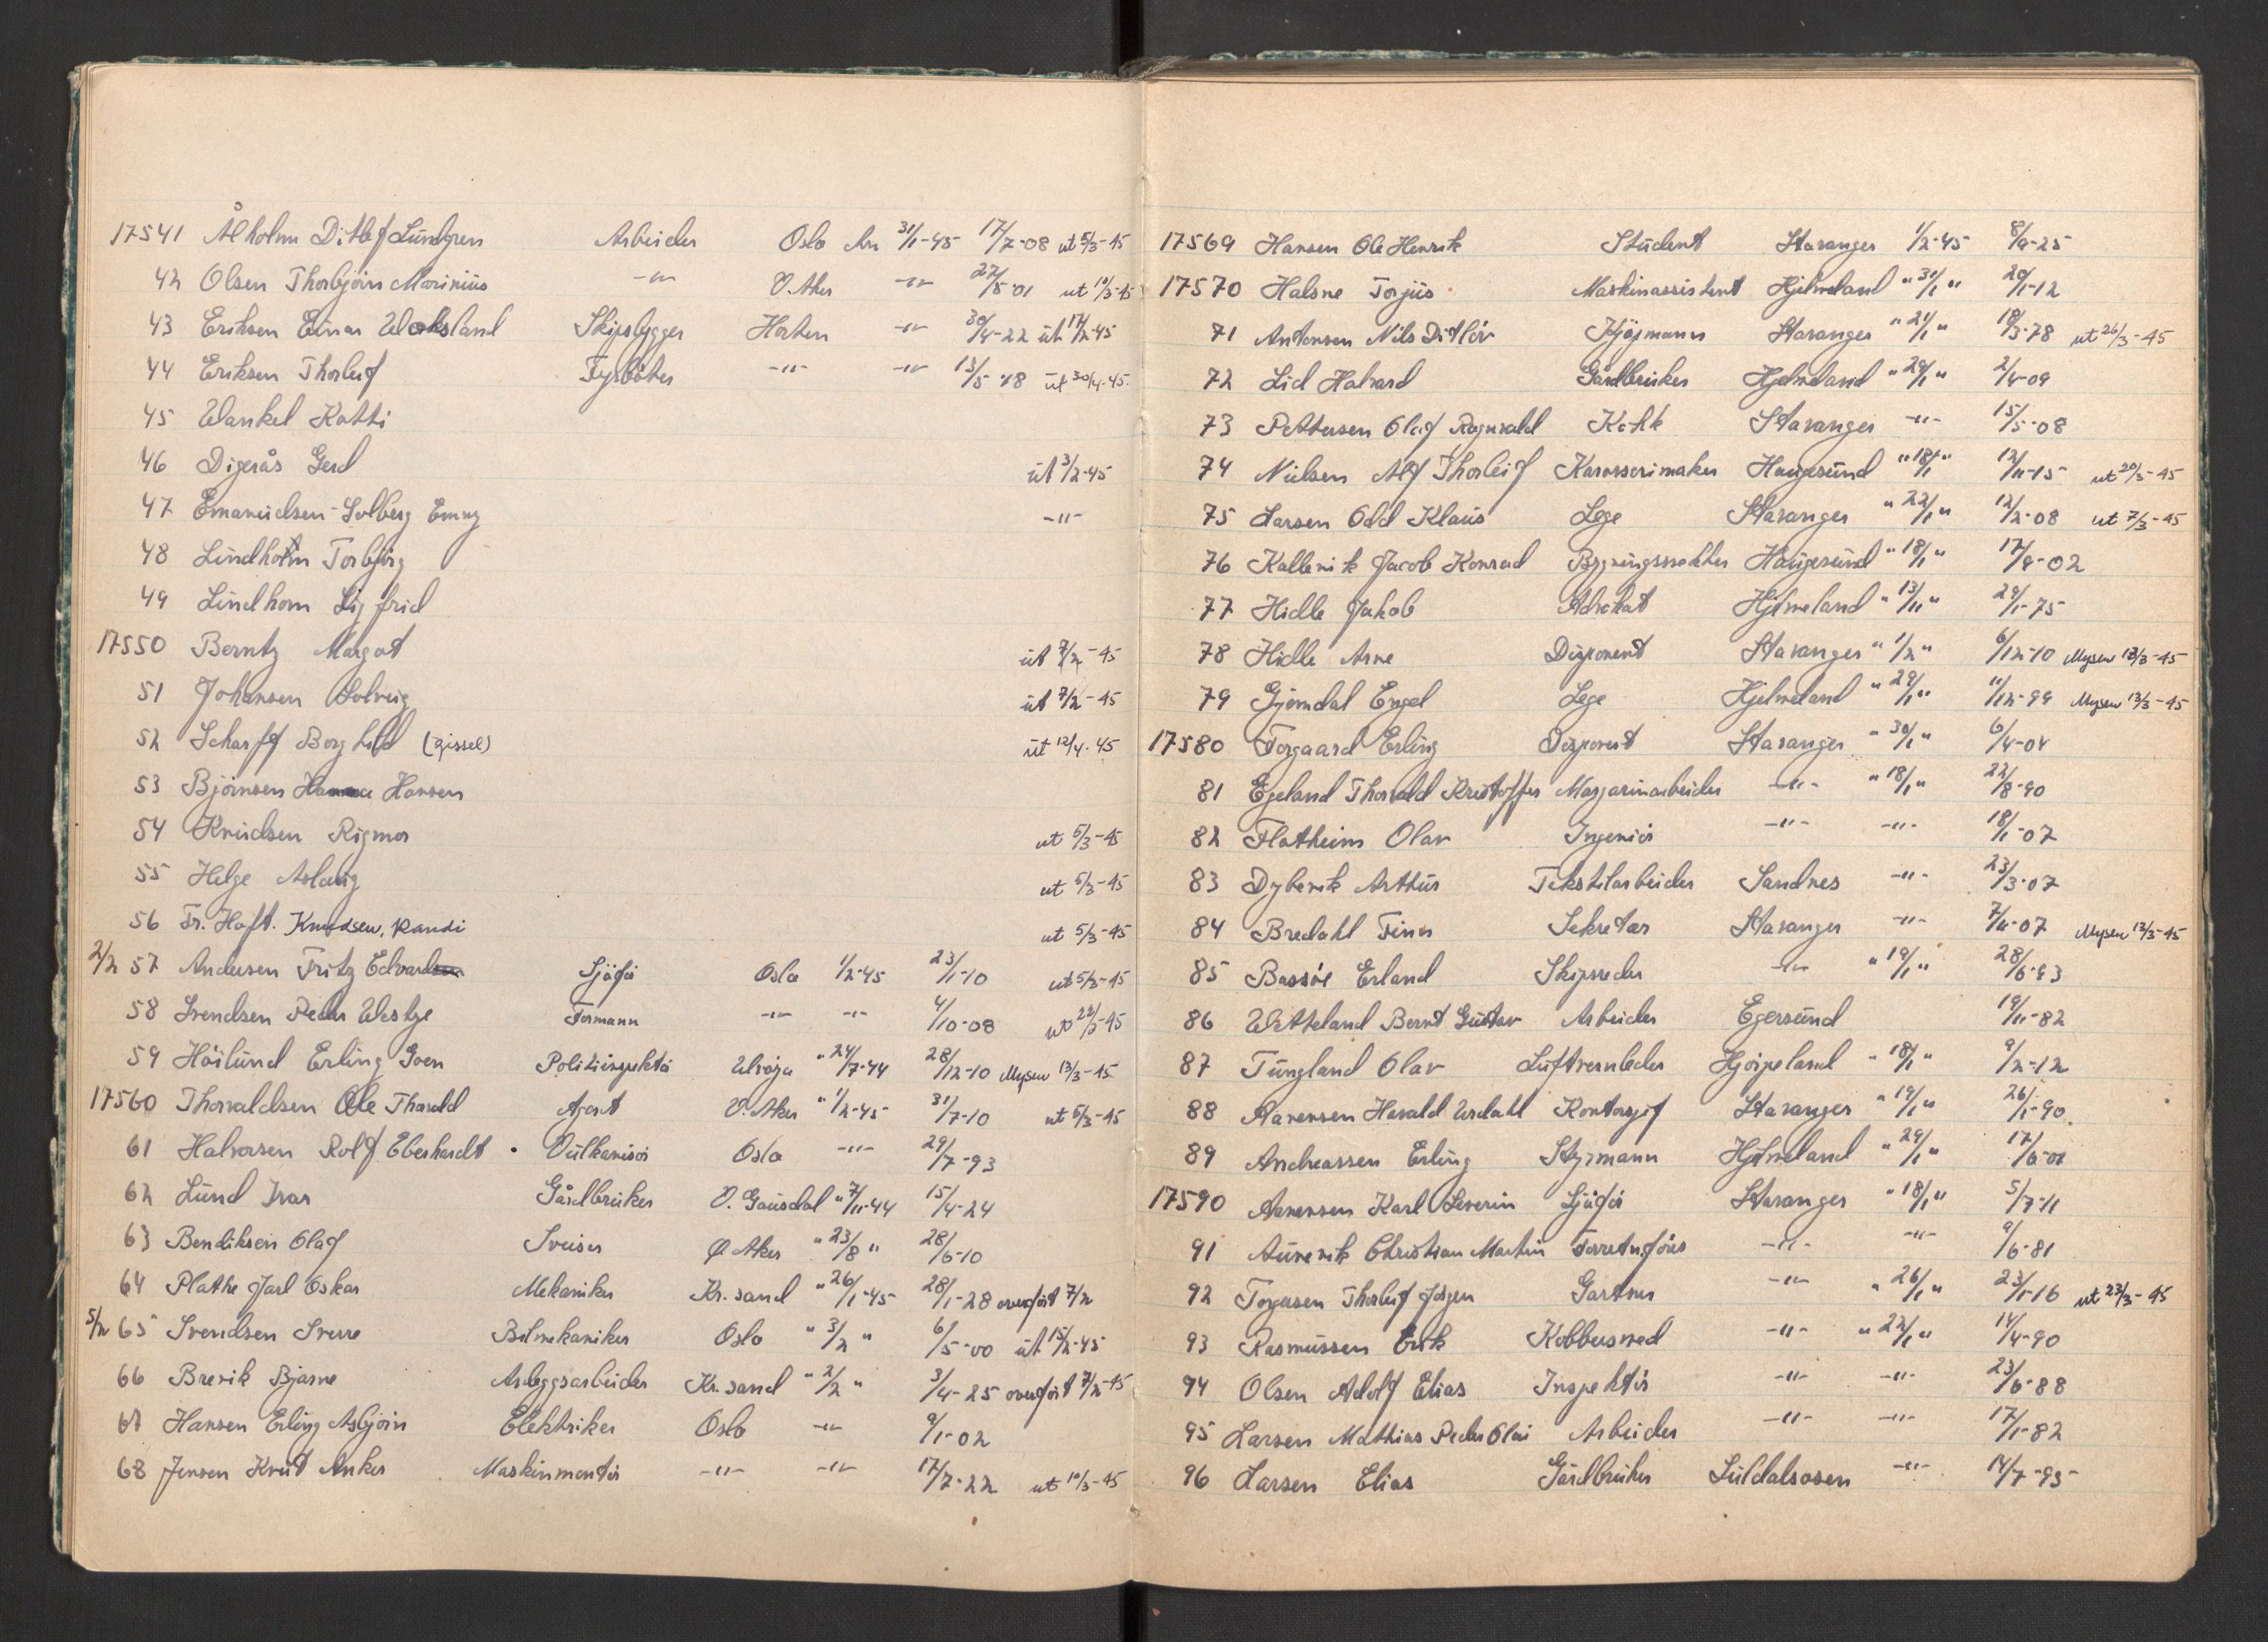 17541 Åholm Ditlef Lundgren Arbeider Oslo Arr 31/1-45 17/7-08 ut 5/3-45
42 Olsen Thorbjørn Marinius -"- V. Aker -"- 27/5-01 ut 10/3-45
43 Eriksen Einar Woksland Skipsbygger Horten -"- 30/4-22 ut 17/2-45
44 Eriksen Thorleif Fyrbøter -"- -"- 13/5-18 ut 30/4-45
45 Wankel Katti
46 Digerås Gerd ut 3/2-45
47 Emanuelsen-Solberg Emmy -"-
48 Lindholm Torbjørg
49 Lindhom Sigfrid
17550 Berntz Margot ut 7/2-45
51 Johansen Solveig ut 7/2-45
52 Scharff Borghild (Gissel) ut 12/4-45
53 Bjørnsen Hansen
54 Knudsen Rigmor ut 5/3-45
55 Helge Aslaug ut 5/3-45
56 Fr. Haft. Knudsen, Randi ut 5/3-45
2/2 57 Andersen Fritz Edvard Sjåfør Oslo 1/2-45 23/1-10 ut 5/3-45
58 Svendsen Peder Westye Formann -"- -"- 4/10-08 ut 22/3-45
59 Høilund Erling Goen Politiinspektør " 24/7-44 28/12-10 Mysen 13/3-45
17560 Thorvaldsen Ole Thorvald Agent V. Aker " 1/2-45 31/7-10 ut 5/3-45
61 Halvorsen Rolf Eberhardt Vulkanisør Oslo -"- 29/7-93
62 Lund Ivar Gårdbruker V. Gausdal " 7/11-44 15/4-24
63 Bendiksen Olaf Sveiser Ø Aker " 23/8 " 28/6-10
64 Plathe Jarl Oskar Mekaniker Kr. sand " 26/1-45 28/1-28 overført 7/2
5/2 65 Svendsen Sverre Bilmekaniker Oslo " 3/2 " 6/5-00 ut 15/2-45
66 Brevik Bjarne Anleggsarbeider Kr. sand " 2/2 " 3/4-25 overført 7/2-45
67 Hansen Erling Asbjørn Elektriker Oslo -"- 9/1-02
68 Jensen Knut Anker Maskinmontør -"- -"- 17/7-22 ut 10/3-45
17569 Hansen Ole Henrik Student Stavanger 1/2-45 8/9-25
17570 Halsne Torjus Maskinassistent Hjelmeland " 31/1 " 20/1-12
71 Antonsen Nils Ditløv Kjøpmann Stavanger " 21/1 " 18/3-78 ut 26/3-45
72 Lid Halvard Gårdbruker Hjelmeland " 29/1 " 2/4-09
73 Pettersen Olaf Ragnvald Kokk Stavanger -"- 15/5-08
74 Nielsen Alf Thorleif Karosserimaker Haugesund " 18/1 " 12/11-15 ut 20/3-45
75 Larsen Odd Klaus Lege Stavanger " 22/1 " 12/2-08 ut 7/3-45
76 Kallevik Jacob Konrad Haugesund " 18/1 " 17/9-02
77 Hidle Jakob Advokat Hjelmeland " 13/11 " 29/1-75
78 Hidle Arne Disponent Stavanger " 1/2 " 6/12-10 Mysen 13/3-45
79 Gjømdal Engel Lege Hjelmeland " 29/1 " 11/12-99 Mysen 13/3-45
17580 Torgaard Erling Disponent Stavanger " 30/1 " 6/4-04
81 Egeland Thorvald Kristoffer Margarinarbeider -"- " 18/1 " 22/8-90
82 Flatheim Olav Ingeniør -"- -"- 18/1-07
83 Dybevik Arthur Tekstilarbeider Sandnes -"- 23/3-07
84 Bredahl Finn Sekretær Stavanger -"- 7/11-07 Mysen 13/3-45
85 Bassøe Erland Skipsreder -"- " 19/1 " 28/6-93
86 Wetteland Bernt Gustav Arbeider Egersund 19/11-82
87 Tungland Olav Luftvernleder Hjørpeland " 18/1 " 9/2-12
88 Aanensen Harald Urdahl Kontorsjef Stavanger " 19/1 " 26/1-90
89 Andreassen Erling Styrmann Hjelmeland " 29/1 " 17/6-01
17590 Aanensen Karl Severin Sjåfør Stavanger " 18/1 " 5/7-11
91 Aunevik Christian Martin -"- -"- 9/6-81
92 Torgersen Thorleif Jørgen Gartner -"- " 26/1 " 23/1-16 ut 23/3-45
93 Rasmussen Erik Kobbersmed -"- " 22/1 " 14/4-90
94 Olsen Adolf Elias Inspektør -"- -"- 23/6-88
95 Larsen Mathias Peder Olai Arbeider -"- -"- 17/1-82
96 Larsen Elias Gårdbruker Suldalsosen -"- 14/7-95